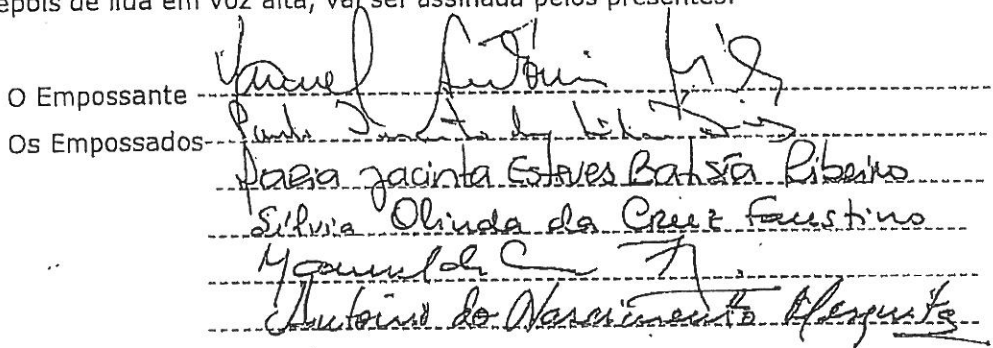 depois de lida em voz alta, vai ser assinada pelos presentes.
O Empossante -- Manuel António
Os Empossados-- Paulo
Maria Jacinta Esteves Batista Ribeiro
Sílvia Olinda da Cruz Faustino
Manuel da
António do Nascimento Mesquita